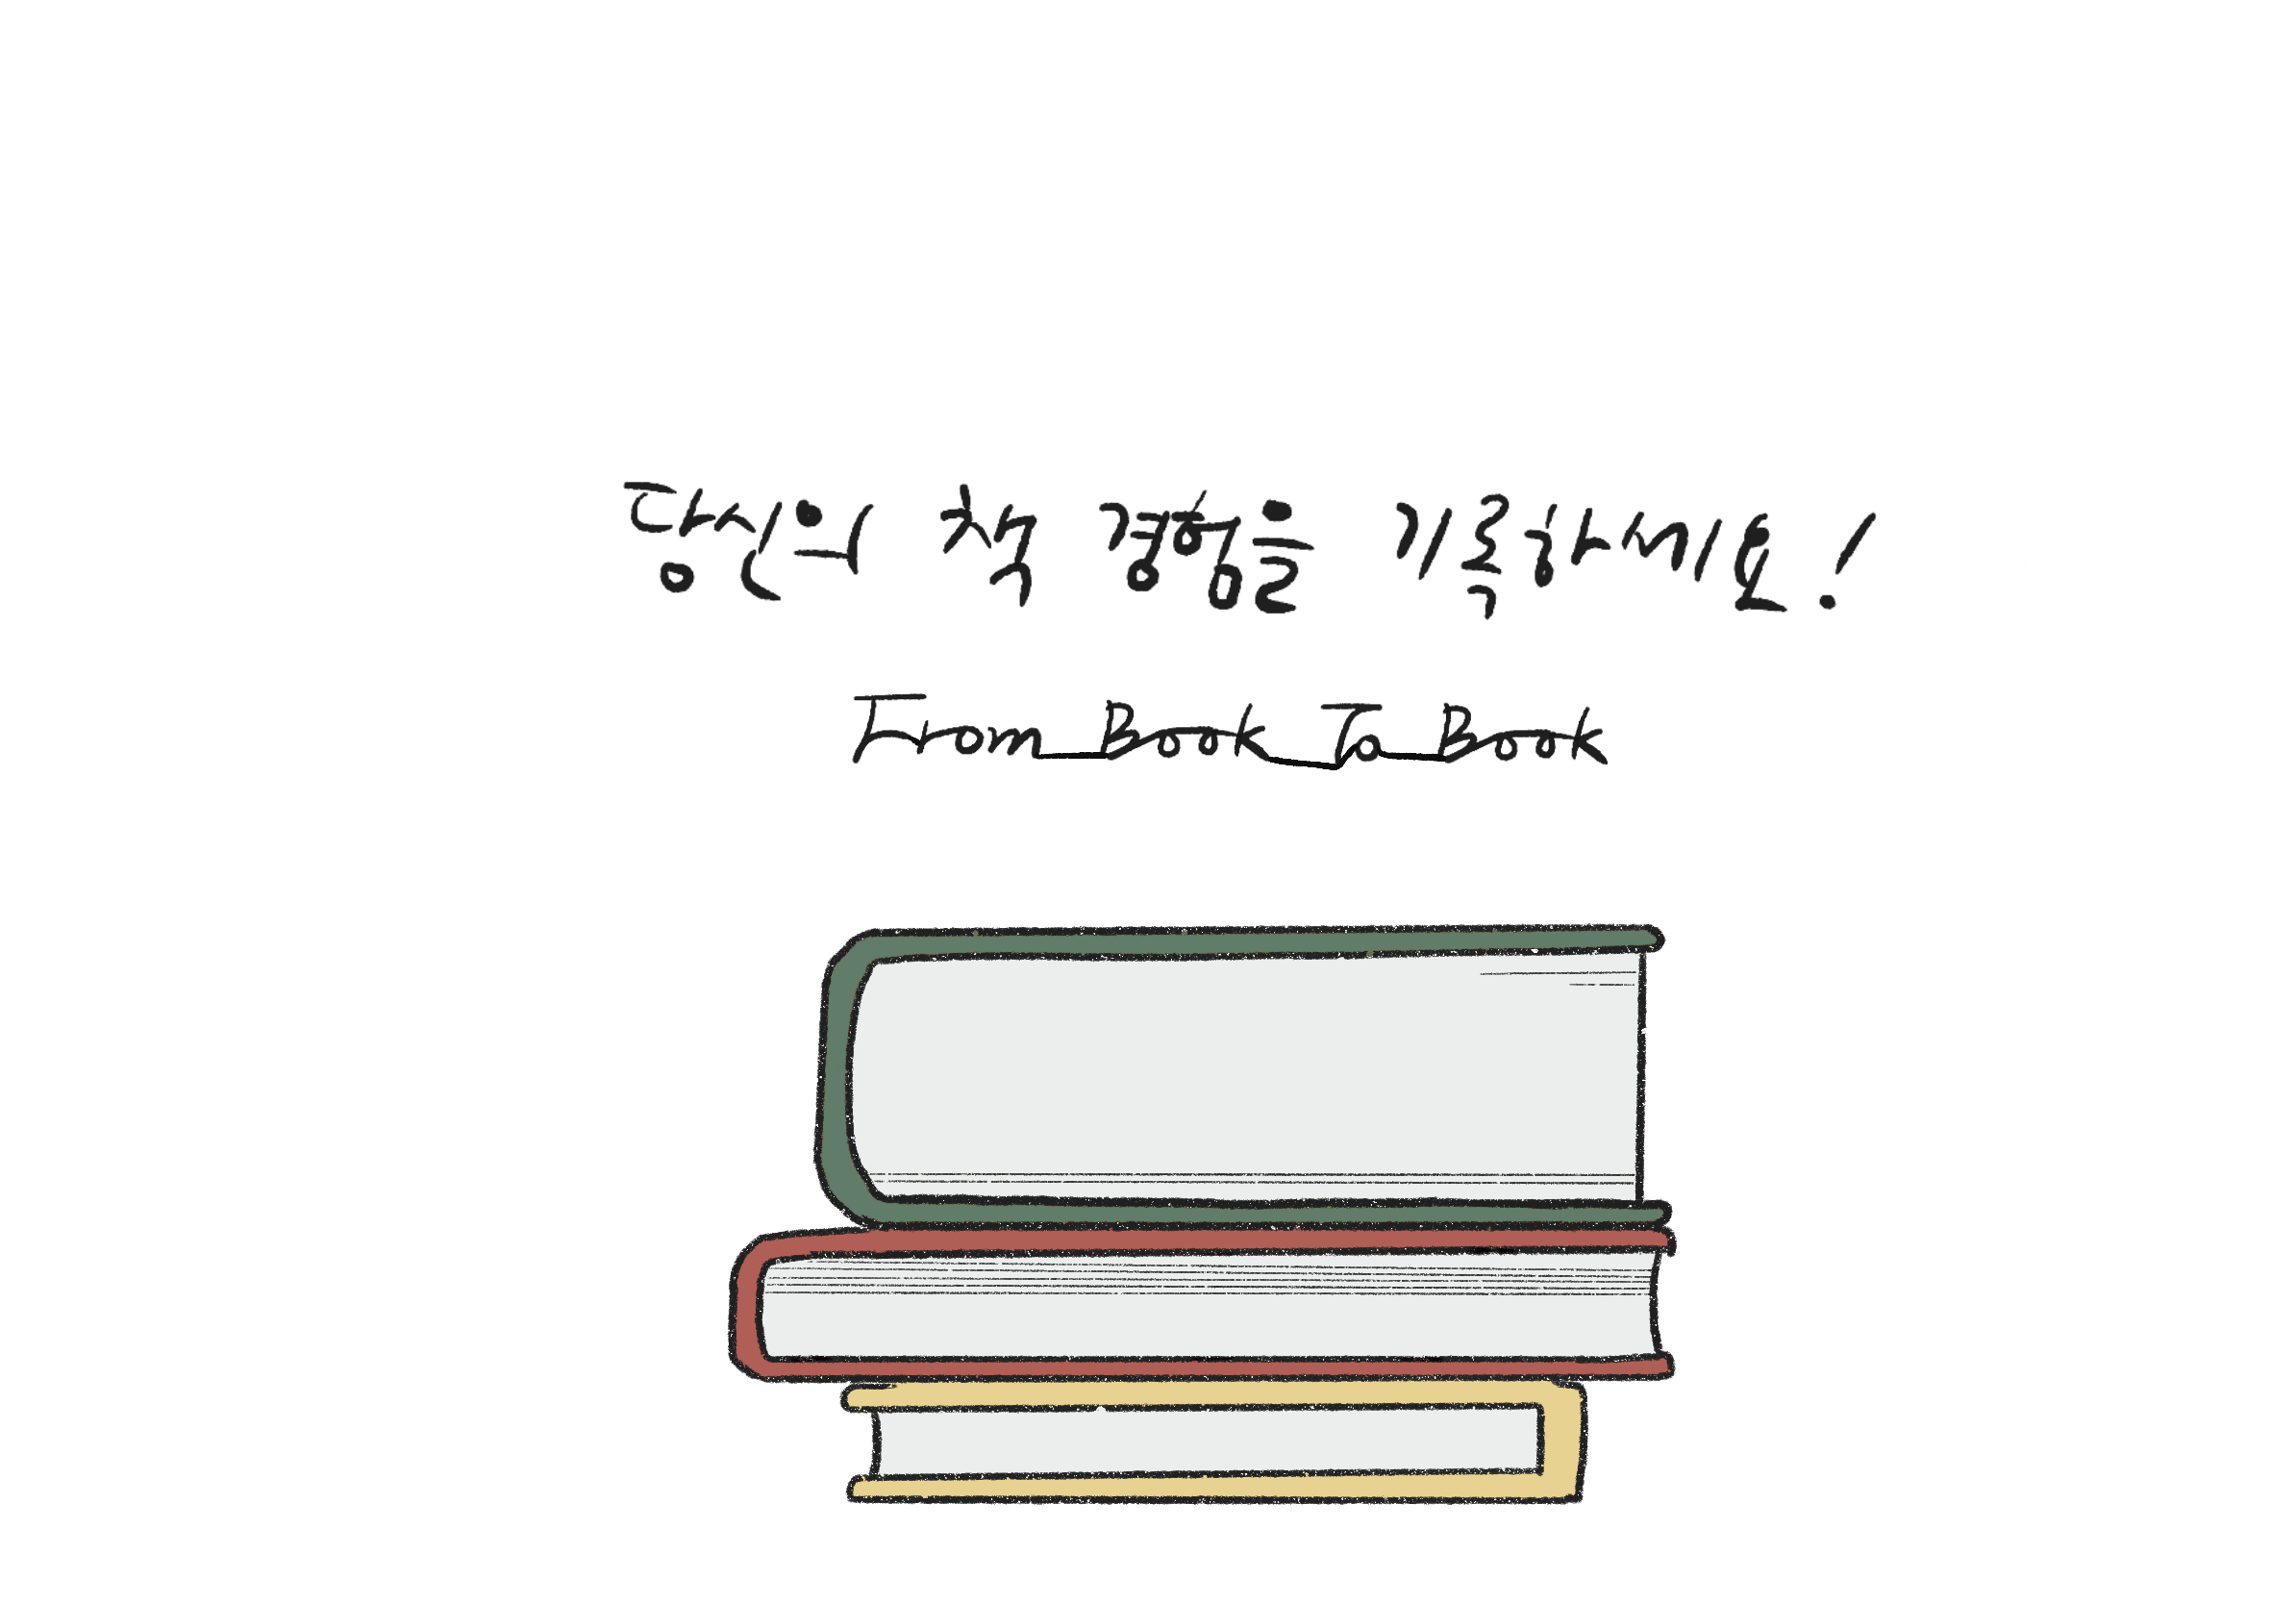 당신의 책 경험을 기록하세요!
From Book To Book